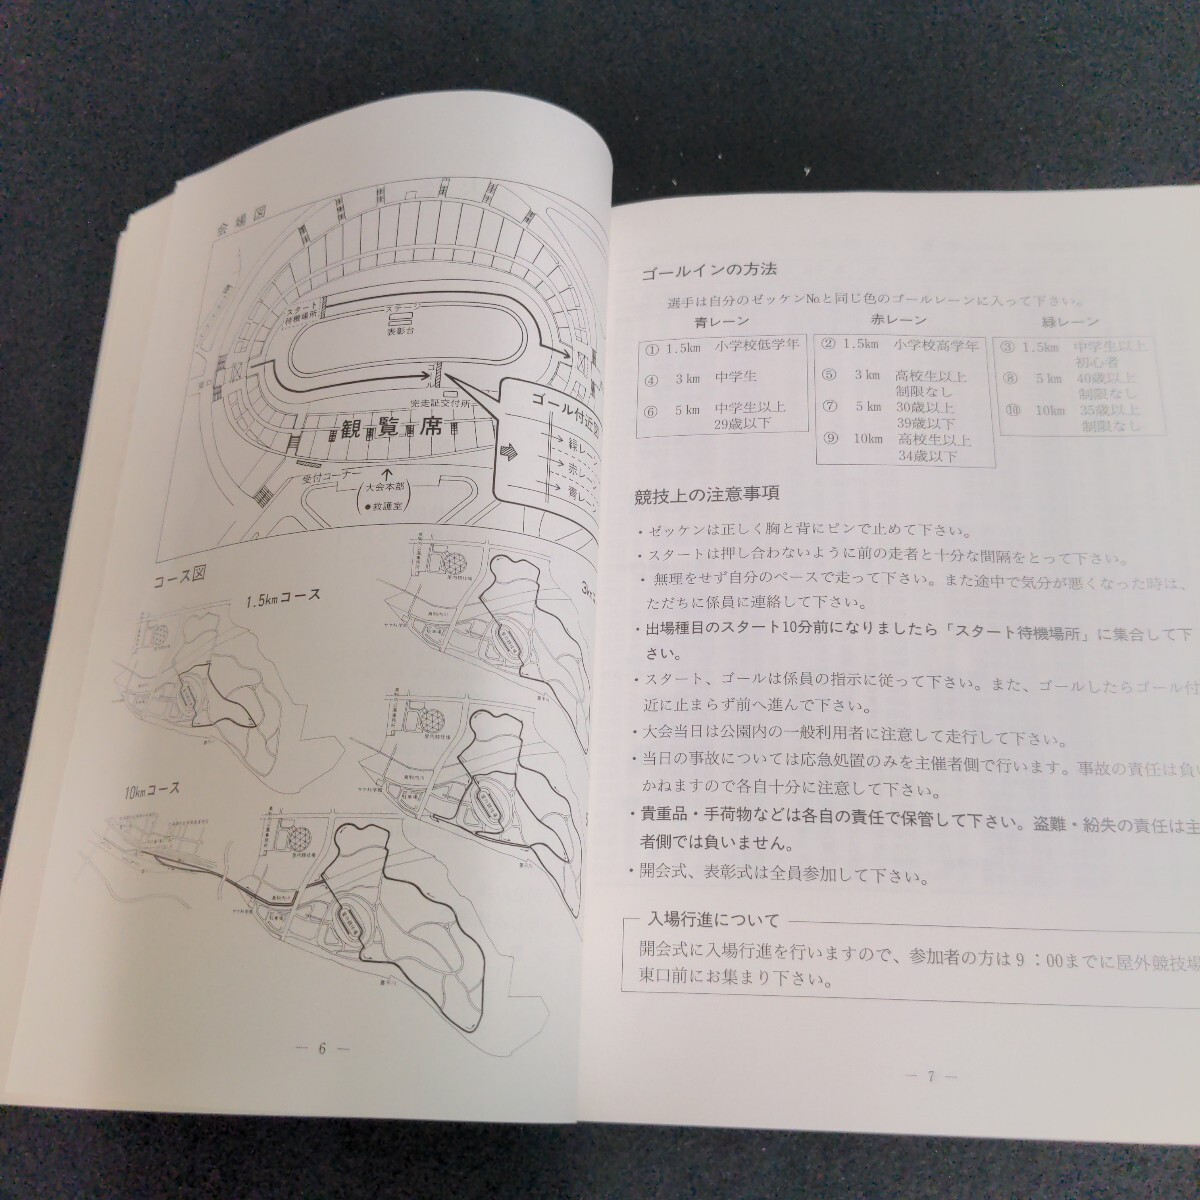 会場図
スタート
待機場所
ステージ
表彰台
ゴール
完走証交付所
観覧席
ゴール付近図
緑レーン
赤レーン
青レーン
受付コーナー
大会本部
●救護室
コース図
1.5kmコース
10kmコース
― 6 ―
ゴールインの方法
選手は自分のゼッケン№と同じ色のゴールレーンに入って下さい。
青レーン
① 1.5km 小学校低学年
④ 3km 中学生
⑥ 5km 中学生以上
29歳以下
赤レーン
② 1.5km 小学校高学年
⑤ 3km 高校生以上
制限なし
⑦ 5km 30歳以上
39歳以下
⑨ 10km 高校生以上
34歳以下
緑レーン
③ 1.5km 中学生以上
初心者
⑧ 5km 40歳以上
制限なし
⑩ 10km 35歳以上
制限なし
競技上の注意事項
・ゼッケンは正しく胸と背にピンで止めて下さい。
・スタートは押し合わないように前の走者と十分な間隔をとって下さい。
・無理をせず自分のペースで走って下さい。また途中で気分が悪くなった時は、
ただちに係員に連絡して下さい。
・出場種目のスタート10分前になりましたら「スタート待機場所」に集合して下
さい。
・スタート、ゴールは係員の指示に従って下さい。また、ゴールしたらゴール付
近に止まらず前へ進んで下さい。
・大会当日は公園内の一般利用者に注意して走行して下さい。
・当日の事故については応急処置のみを主催者側で行います。事故の責任は負い
かねますので各自十分に注意して下さい。
・貴重品・手荷物などは各自の責任で保管して下さい。盗難・紛失の責任は主
者側では負いません。
・開会式、表彰式は全員参加して下さい。
入場行進について
開会式に入場行進を行いますので、参加者の方は9：00までに屋外競技場
東口前にお集まり下さい。
― 7 ―